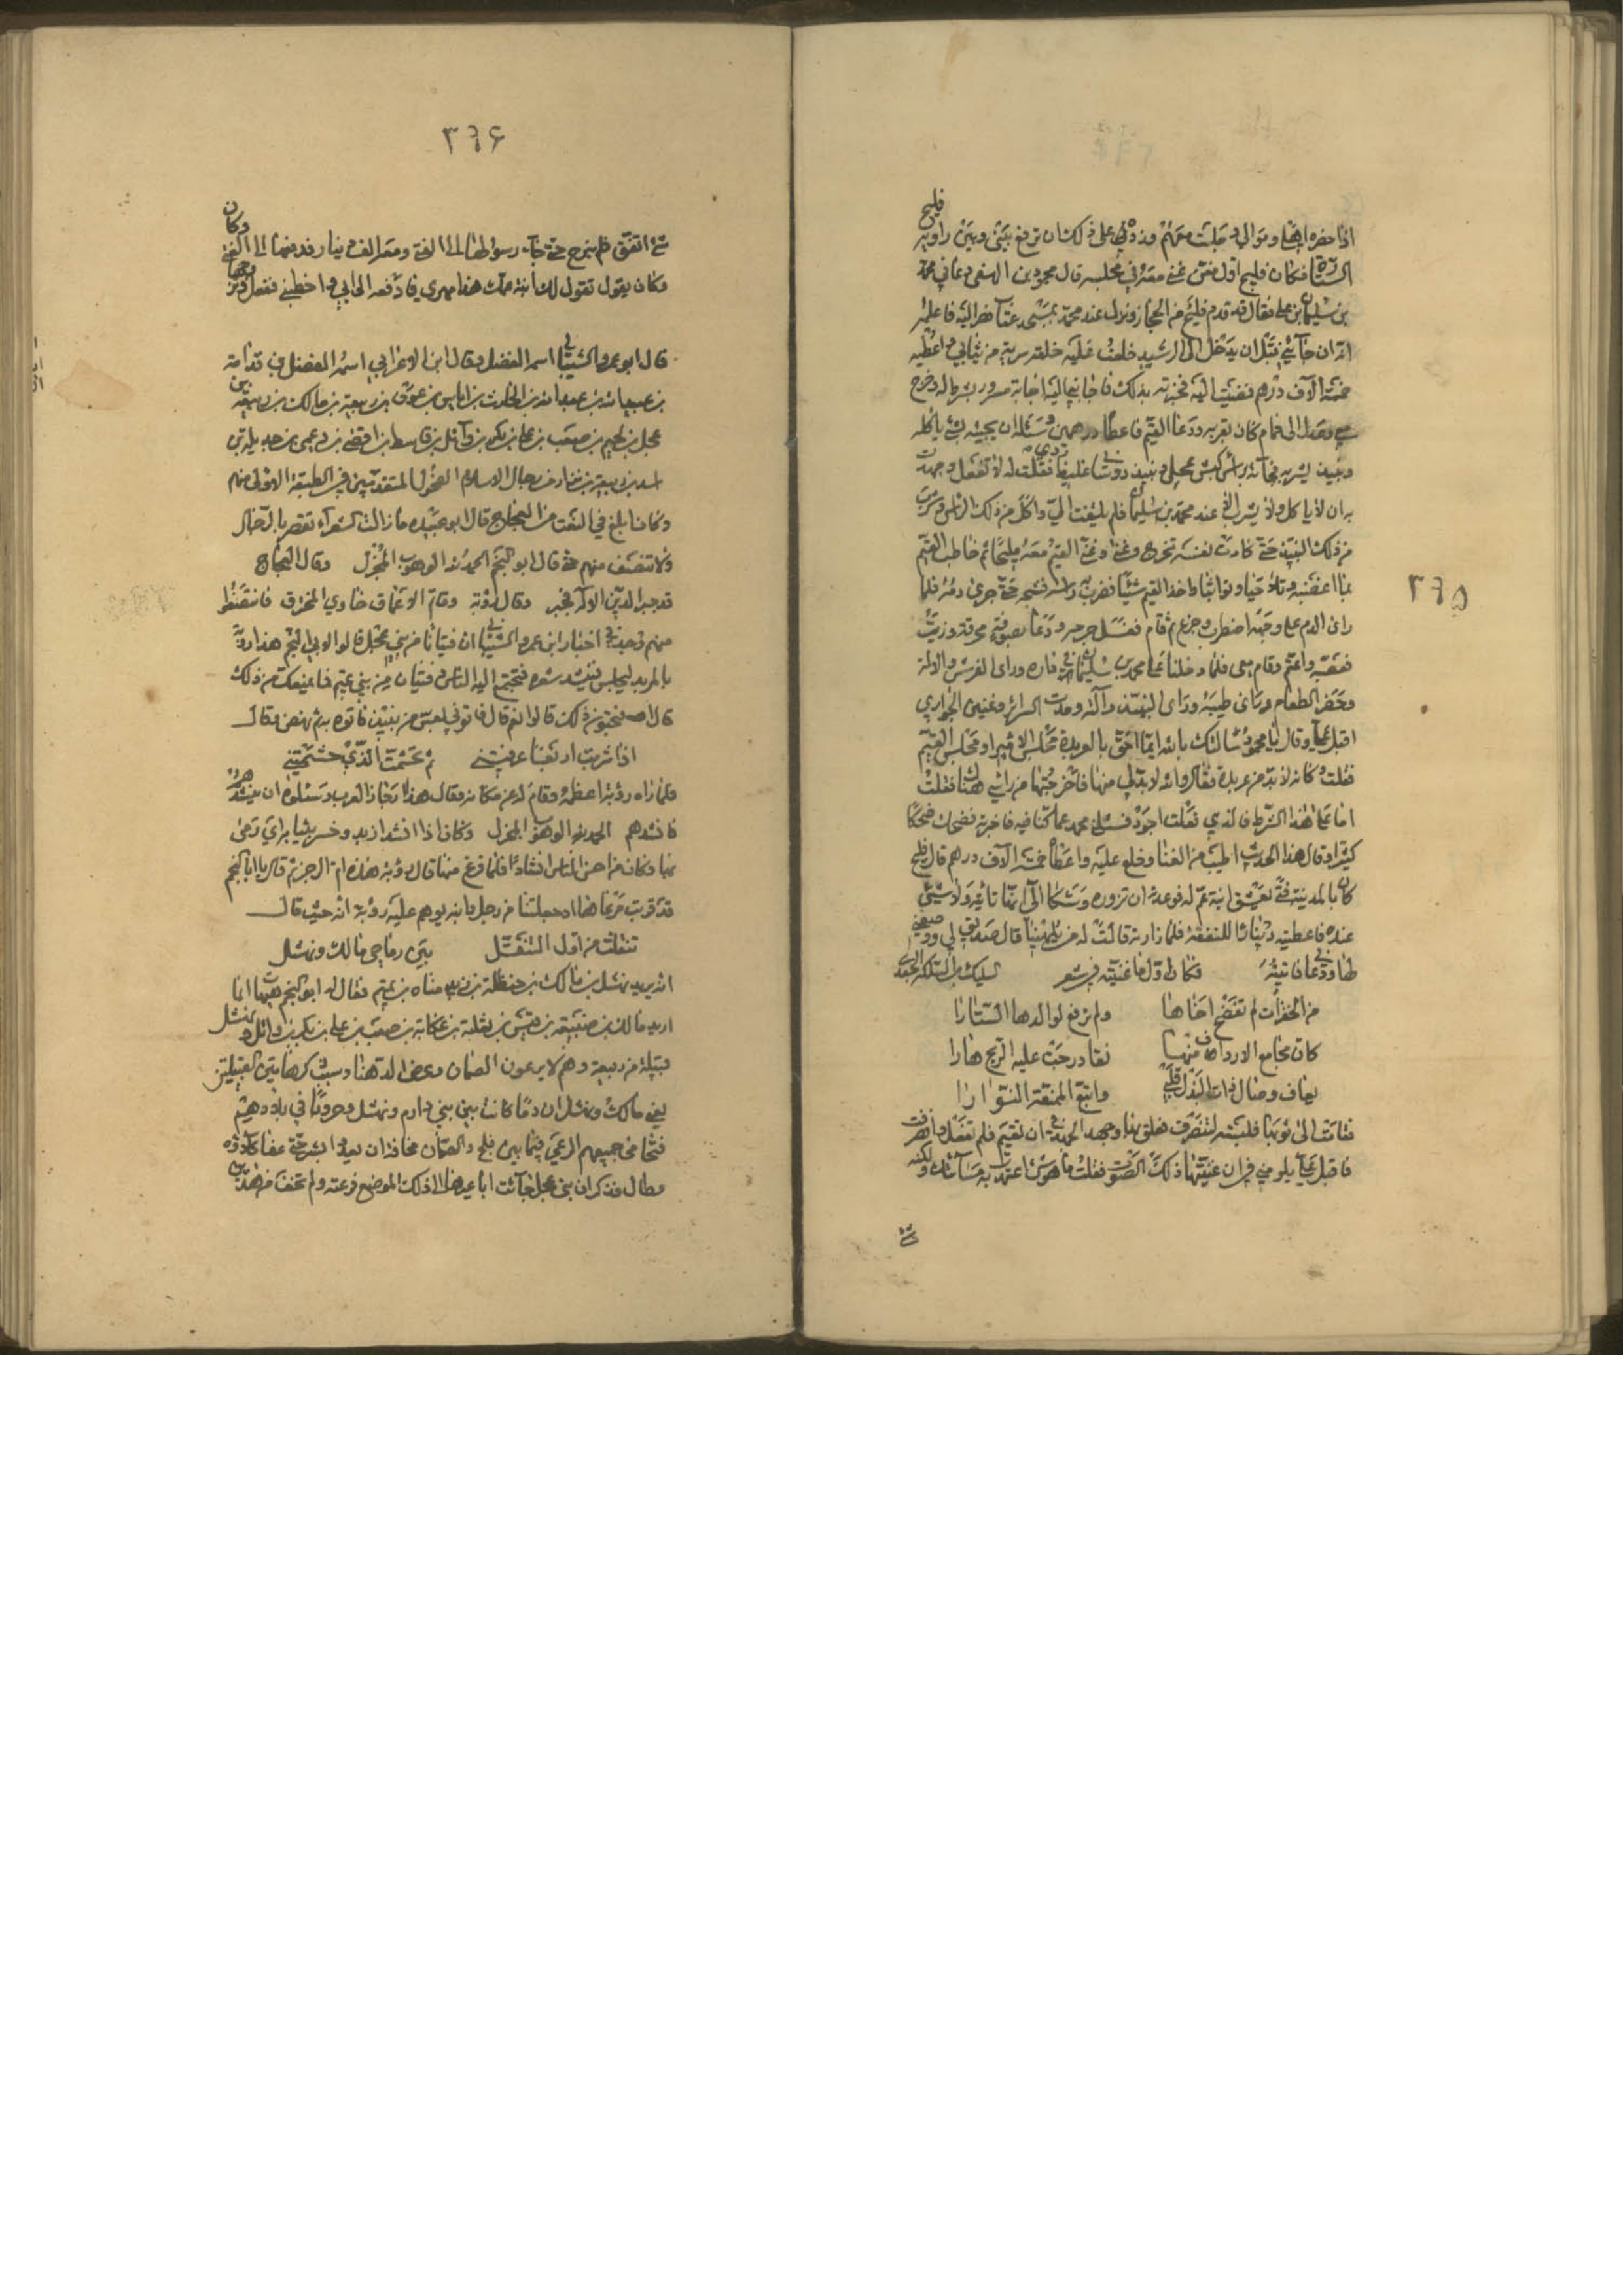 ٣٦٥
اذا حضره اهلنا وموالينا وجلست معهم ونزهني على ذلك كان ترفع بيني وبين راويه
فليح
الستارة فكان فليح اول من غنى معه في مجلسه قال محمد بن الهنفي دعاني محمد
بن سليمان بن علي فقال قد قدم فليح من الحجاز ونزل عند محمد بمسجد عتاب فمر اليه فاعلمه
انه ان جاءني قبل ان يدخل الى الرشيد خلعت عليه خلعة سرية من ثيابي واعطيه
خمسة الاف درهم فمضيت اليه فخبرته بذلك فاجابني اليه اجابة مسرور نشط له وخرج
معي وعدل الى حمام كان بقربه ودعا القيم فاعطاه درهمين وسئله ان يجيئه بشئ ياكله
ونبيذ يشربه فجاءه براس كبش عجلي ونبيذ دوشابي غليظ ردي فقلت له لا تفعل وجهدت
به ان لا ياكل ولا يشرب الا عند محمد بن سليمان فلم يلتفت الي واكل من ذلك الراس وشرب
من ذلك النبيذ حتى كادت نفسه تخرج وغنى وغنى القيم معه مليحا ثم خاطب القيم
بما اغضبه وتلاحيا وتواثبا واخذ القيم شيئا فضربه به راسه فشجه حتى جرى دمه فلما
راى الدم على وجهه اضطرب وجزع ثم قام فغسل جرحه ودعا بصوفة محرقة وزيت
فعصبه واعتم وقام معي فلما دخلنا على محمد بن سليمان في داره وراى الفرش والالة
وحضر الطعام وراى طيبه وراى النبيذ وآلته ومدت الستائر وغنين الجواري
اقبل علي وقال يا محمد سالتك بالله ايما احق بالعربدة مجلس الامير او مجلس القيم
فقلت وكانه لا بد من عربدة فقال والله لا بد لي منها فاخرجتها من راسي هناك فقلت
اما على هذا الشرط فالذي فعلت اجود فسئلني محمد عما كنا فيه فاخبرته فضحك ضحكا
كثيرا وقال هذا الحديث اطيب من الغنا وخلع عليه واعطاه خمسة الاف درهم قال فليح
كان بالمدينة فتى يعشق ابنة عم له فوعدته ان تزوره وشكا الي انها تاتيه ولا شئ
عنده فاعطيته دينارا للنفقة فلما زارته قالت له من يلهينا قال صديق لي ووصفني
لها ودعاني فاتيته فكان اول ما غنيته في شعر السليك بن السلكة السعدي
من الخفرات لم تفضح اخاها ولم ترفع لوالدها الستارا
كان مجامع الارداف منها نقا درجت عليه الريح هارا
يعاف وصال ذات البذل قلبي واتبع الممنعة النوارا
فقامت الى ثوبها فلبسته لتنصرف فعلق بها وجهد الجهد في ان تقيم فلم تفعل وانصرفت
فاقبل علي يلومني في ان غنيتها ذلك الصوت فقلت ما هو شئ اعتمدت به مسائتك ولكنه
شئ
٣٦٦
شئ اتفق فلم نبرح حتى جاء رسولها الى الفتى ومعه الف دينار فدفعها الى الفتى
وكان
وكان يقول تقول لك ابنة عمك هذا مهري فادفعه الى ابي واخطبني ففعل وتزوجها
قال ابو عمرو الشيباني اسمه الفضل وقال ابن الاعرابي اسمه المفضل بن قدامة
بن عبيد الله بن عبد الله بن الحارث بن اياس بن عوف بن ربيعة بن مالك بن ربيعة بن
عجل بن لجيم بن صعب بن علي بن بكر بن وائل بن قاسط بن اقصى بن دعمي بن جديلة بن
اسد بن ربيعة بن نزار من رجال الاسلام الفحول المتقدمين في الطبقة الاولى منهم
وكان ابلغ في النعت من العجاج قال ابو عبيده ما زالت الشعراء تقصر بالرجاز
ولا تنصف منهم حتى قال ابو النجم الحمد لله الوهوب المجزل وقال العجاج
قد جبر الدين الاله فجبر وقال رؤبة وقاتم الاعماق خاوي المخترق فانتصفوا
منهم وجد في اخبار ابن عمرو الشيباني ان فتيانا من بني عجل قالوا لابي النجم هذا رؤبة
بالمربد يجلس فينشد شعره فتجتمع اليه الناس وفتيان من بني تميم فما يمنعك من ذلك
قال او تحبون ذلك قالوا نعم قال فاتوني بعس من نبيذ فاتوه به ثم نهض وقال
اذا شربت اربعا عرفتني ثم تجشمت الذي جشمتني
فلما راه رؤبة اعظمه وقام له عن مكانه وقال هذا رجاز العرب وسئلوه ان ينشدهم
فانشدهم الحمد لله الوهوب المجزل وكان اذا انشد ازبد
بها وكان من احسن الناس انشادا فلما فرغ منها قال رؤبة هذه ام الرجز ثم قال يا ابا النجم
قد قربت مرعاها اذ جعلتها من رجل وابنه يوهم عليه رؤبة انه حيث قال
تنقلت من اول التنقل بين رماحي مالك ونهشل
انه يريد نهشل بن مالك بن حنظلة بن زيد مناه بن تميم فقال له ابو النجم هيهات انما
اريد مالك بن ضبيعة بن قيس بن ثعلبة بن عكابة بن صعب بن علي بن بكر بن وائل ونهشل
قبيلة من ربيعة وهم لا يرعون الصمان وعرض الدهنا وسبب ذكر هاتين القبيلتين
يعني مالك ونهشل ان دما كانت بين بني دارم ونهشل وحروبا في بلادهم
فتحامى جميعهم الرعي فيما بين فلج والصمان مخافة ان يعروا بشر حتى عفا كلاؤه
وطال فذكر ان بني عجل جائت الى ذلك الموضع فرعته ولم تخف من هذين